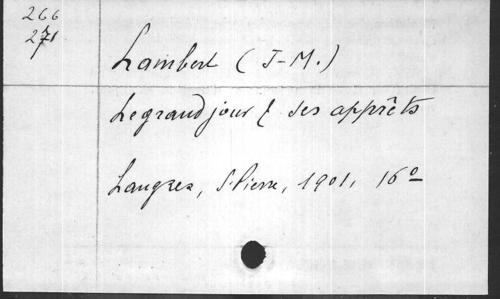 266
271
Lambert (J-M.)
Le grand jour & ses apprêts
Langres, St Pierre, 1901, 16º